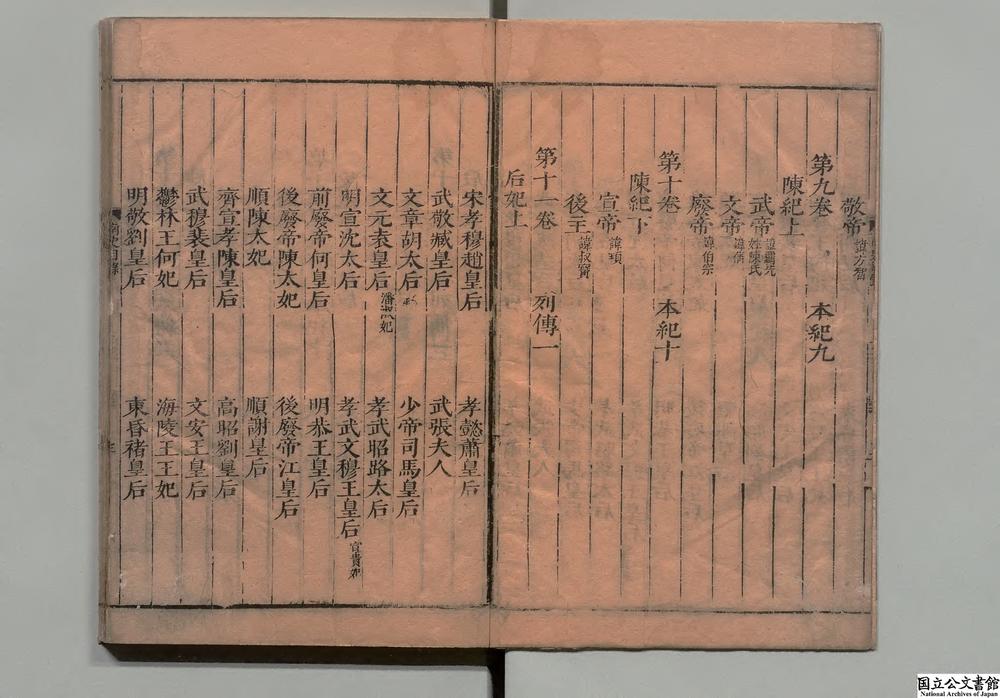 敬帝 諱方智
第九卷 本紀九
陳紀上
武帝 諱霸先 姓陳氏
文帝 諱蒨
廢帝 諱伯宗
第十卷 本紀十
陳紀下
宣帝 諱頊
後主 諱叔寶
第十一卷 列傳一
后妃上
宋孝穆趙皇后 孝懿蕭皇后
武敬臧皇后 武張夫人
文章胡太后 少帝司馬皇后
文元袁皇后 潘淑妃 孝武昭路太后
明宣沈太后 孝武文穆王皇后 宣貴妃
前廢帝何皇后 明恭王皇后
後廢帝陳太妃 後廢帝江皇后
順陳太妃 順謝皇后
齊宣孝陳皇后 高昭劉皇后
武穆裴皇后 文安王皇后
鬱林王何妃 海陵王王妃
明敬劉皇后 東昏褚皇后
国立公文書館
National Archives of Japan